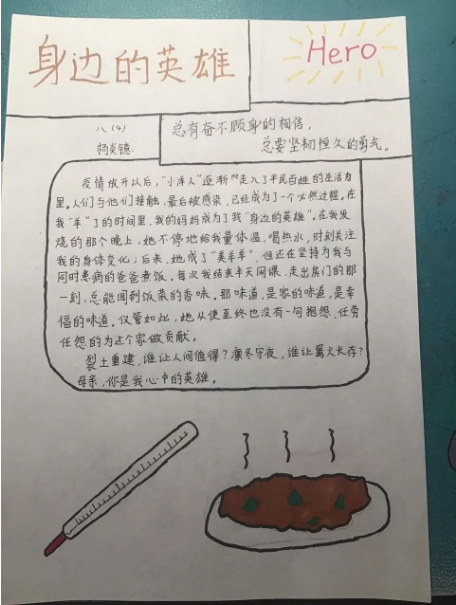 身边的英雄
Hero
八(4)
杨炎镱
总有奋不顾身的相信，
总要坚韧恒久的勇气。
疫情放开以后，“小洋人”逐渐的走入了平民百姓的生活方
里。人们与他们接触，最后被感染，已经成为了一个必然过程。在
我“羊”了的时间里，我的妈妈成为了我“身边的英雄”。在我发
烧的那个晚上，她不停地给我量体温，喝热水，时刻关注
我的身体变化；后来，她成了“美羊羊”，但还在坚持为我与
同时患病的爸爸煮饭，每次我结束半天网课，走出房门的那
一刻，总能闻到饭菜的香味。那味道，是家的味道，是幸
福的味道。仅管如此，她从使至终也没有一句抱怨，任劳
任怨的为这个家做贡献。
裂土重建，谁让人间值得？凛冬守夜，谁让篝火长存？
母亲，你是我心中的英雄。